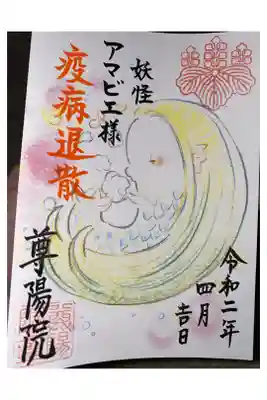 妖怪
アマビエ様
疫病退散
令和二年
四月
吉日
尊陽院